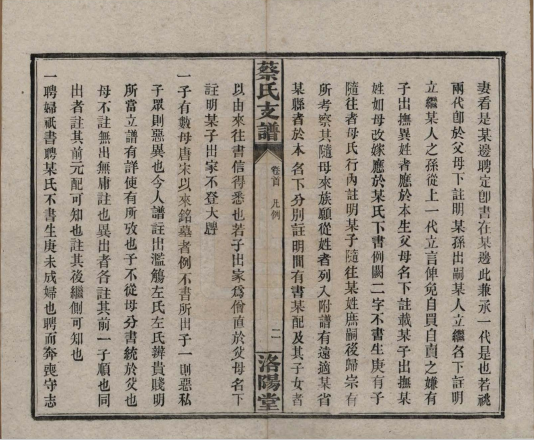 妻看是某邊聘定卽書在某邊此兼承一代是也若祧
兩代卽於父母下註明某孫出嗣某人立繼名下註明
立繼某人之孫從上一代立言俾免自買自賣之嫌有
子出撫異姓者應於本生父母名下註載某子出撫某
姓如母改嫁應於某氏下書例關二字不書生庚有子
隨往者母氏行內註明某子隨往某姓庶嗣後歸宗有
所考察其隨母來族願從姓者列入附譜有遠適某省
某縣者於本名下分別註明間有書某配及其子女者
蔡氏支譜
卷首 凡例
二
洛陽堂
以由來往書信得悉也若子出家爲僧直於父母名下
註明某子出家不登大譜
一子有數母唐宋以來銘墓者例不書所出于一則惡私
子眾則惡異也今人譜註出濫觴左氏左氏辨貴賤明
所當立譜有詳使有所攷也予不從母分書統於父也
母不註無出無庸註也異出者各註其前一子順也同
出者註其前元配可知也註其後繼側可知也
一聘婦祇書聘某氏不書生庚未成婦也聘而奔喪守志